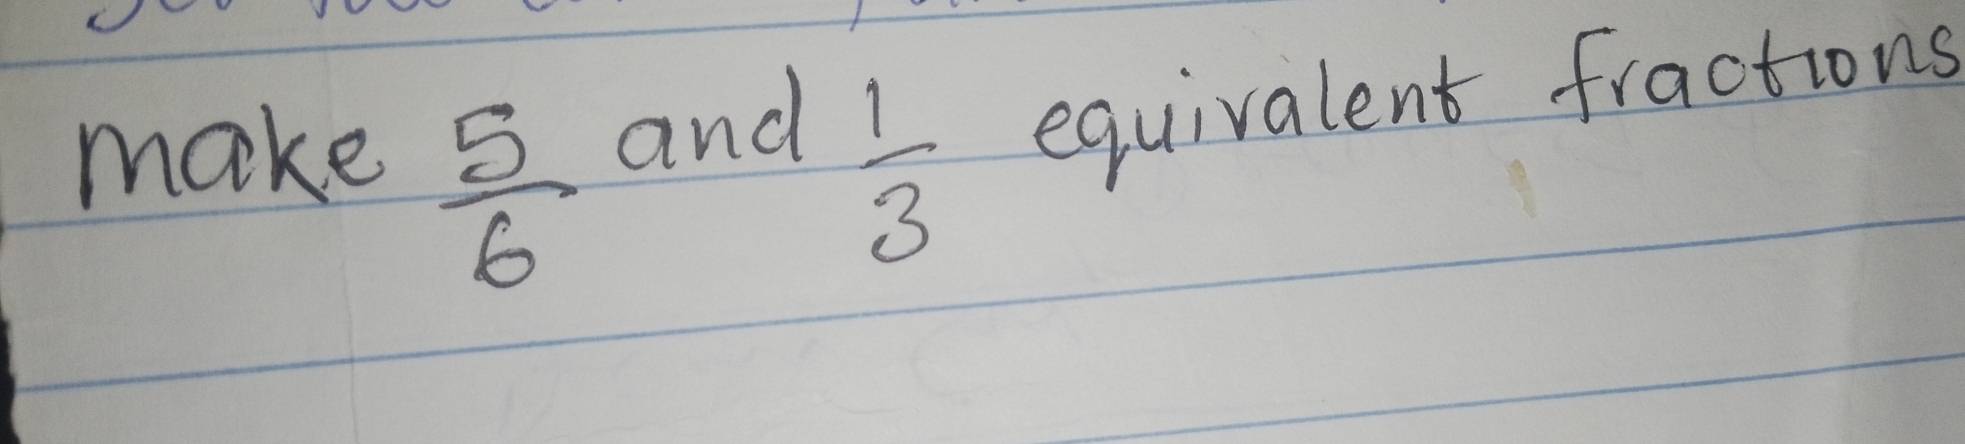 make 5/6 and 1/3 equivalent fractions